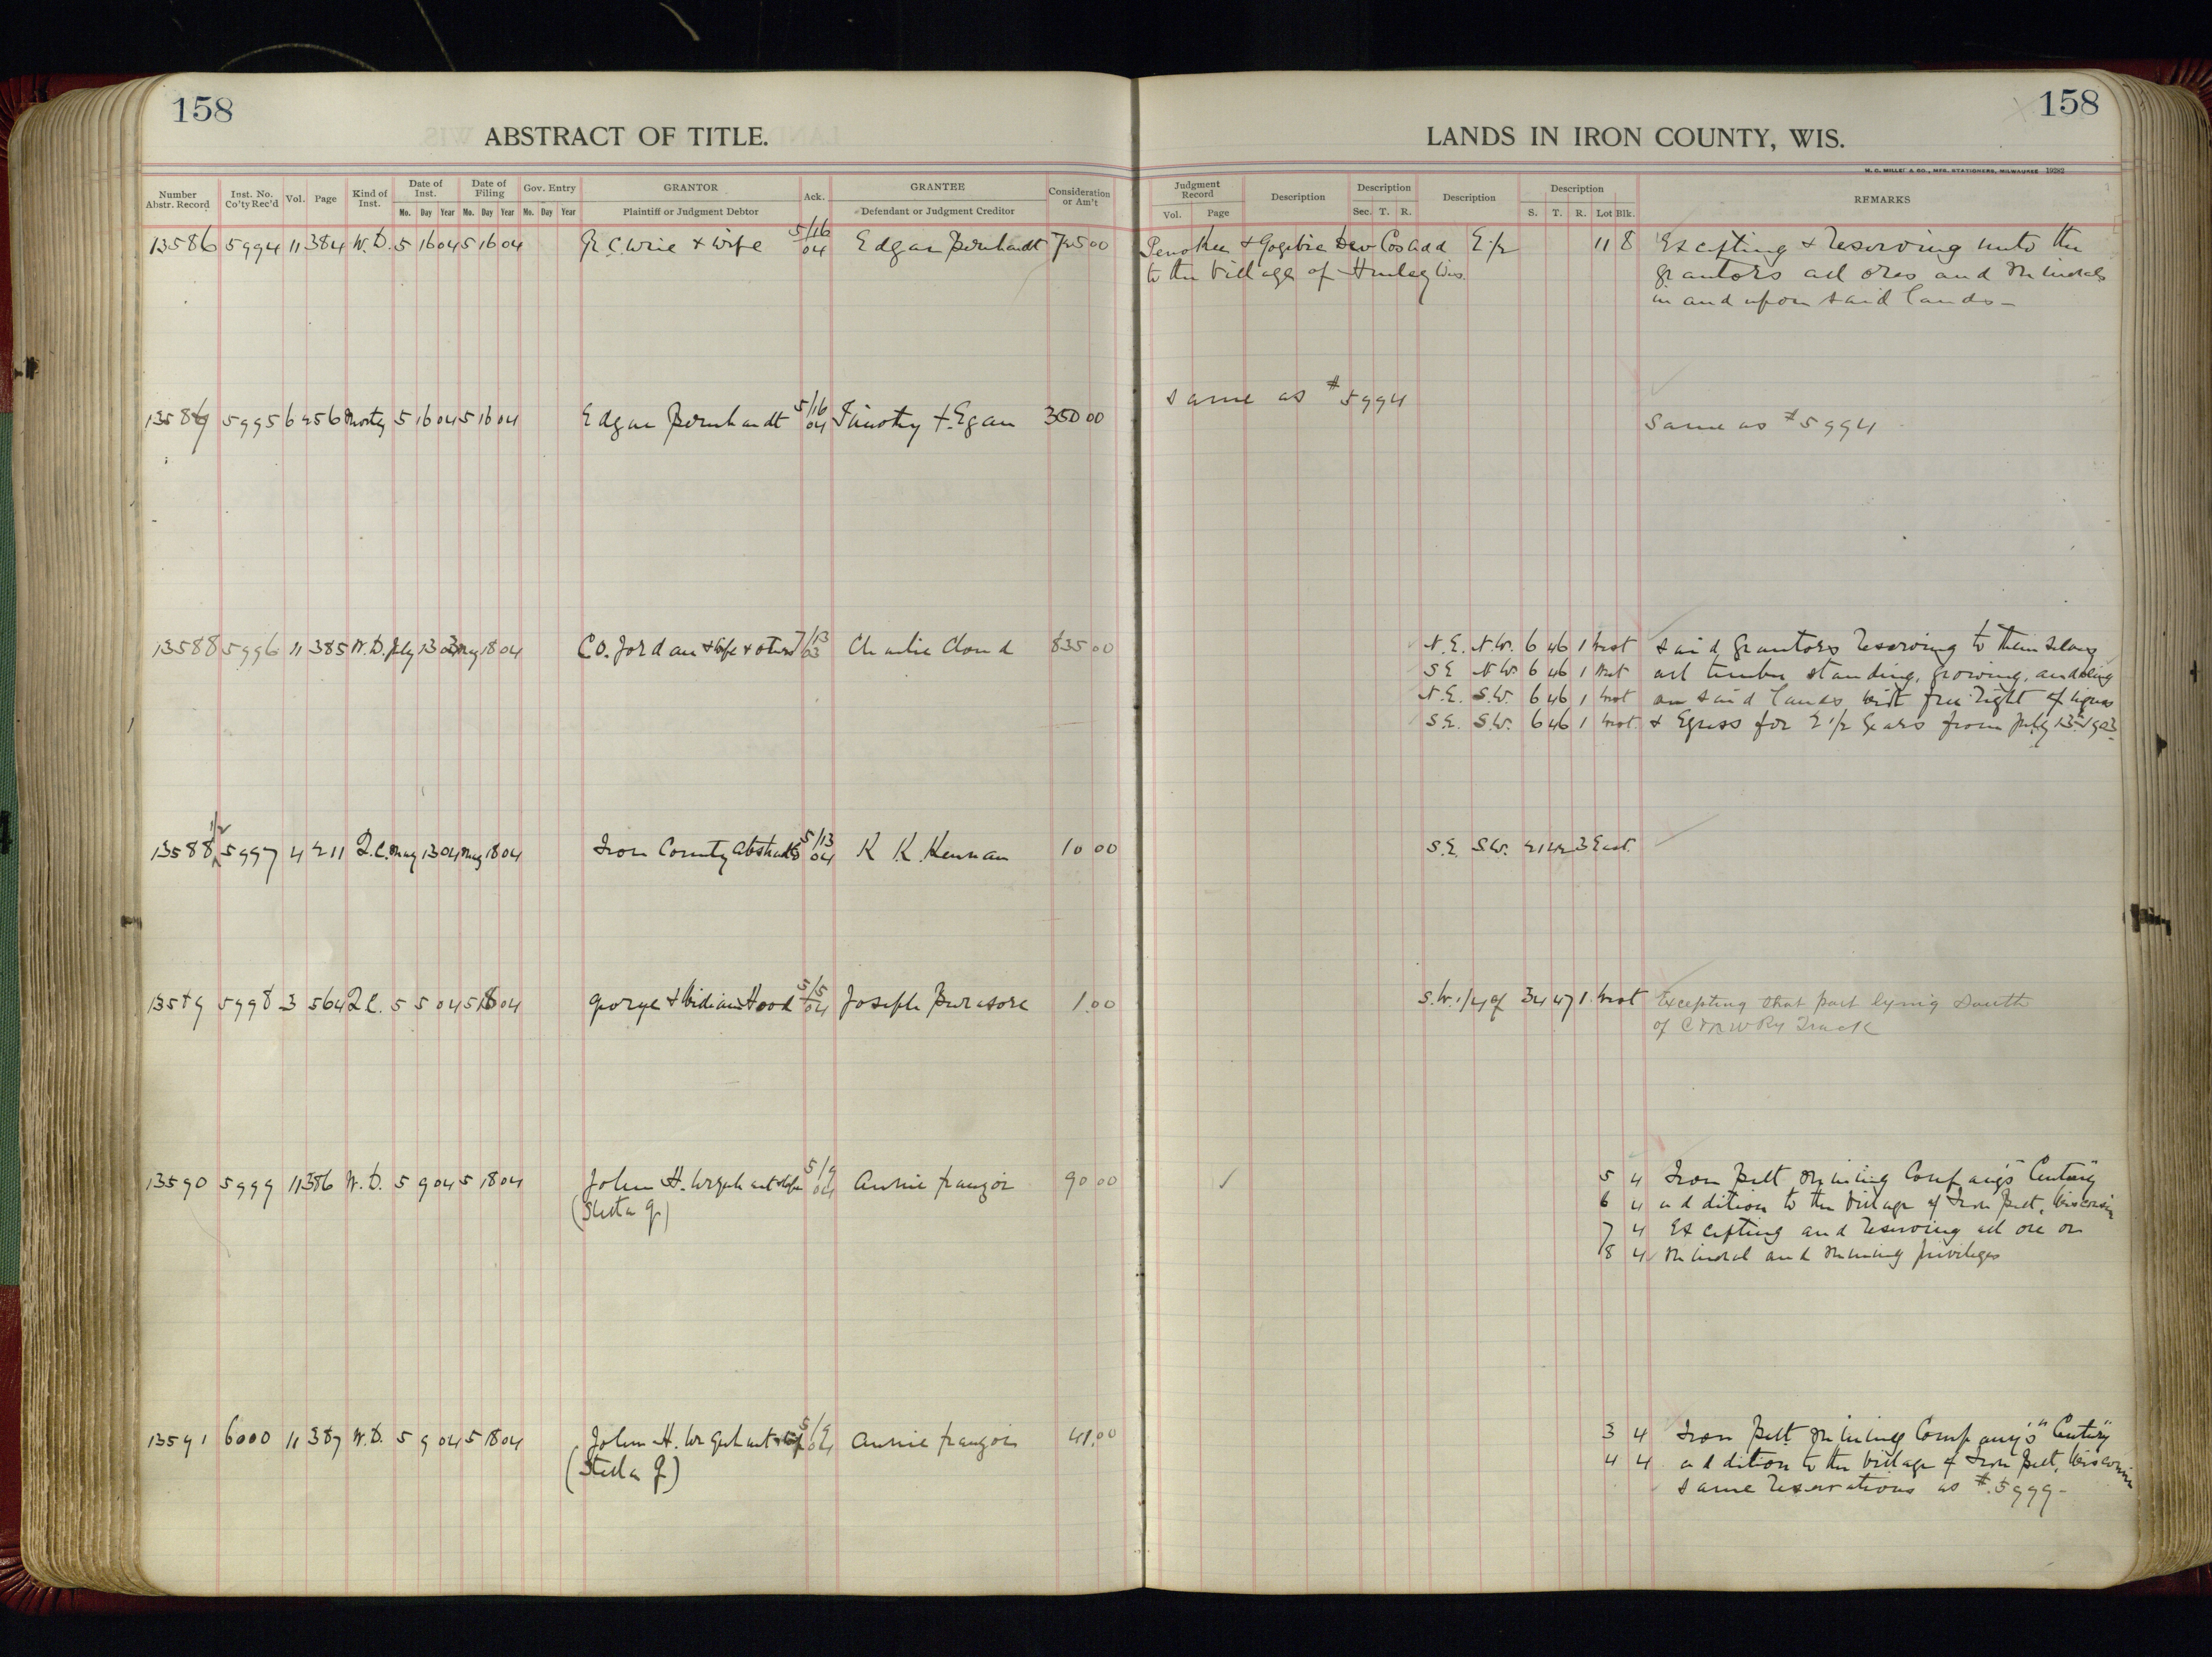 158
158
ABSTRACT OF TITLE.
LANDS IN IRON COUNTY, WIS.
H. C. MILLER & CO., MFG. STATIONERS, MILWAUKEE 19282
Number Abstr. Record
Inst. No. Co'ty Rec'd
Vol.
Page
Kind of Inst.
Date of Inst.
Mo. Day Year
Date of Filing
Mo. Day Year
Gov. Entry
Mo. Day Year
GRANTOR
Plaintiff or Judgment Debtor
Ack.
GRANTEE
Defendant or Judgment Creditor
Consideration or Am't
Judgment Record
Vol. Page
Description
Description
Sec. T. R.
Description
Description
S. T. R. Lot Blk.
REMARKS
13586 5994 11 384 W.D. 5 16 04 5 16 04 & wife 5/16 04 Edgar Bernhardt 725 00 Penokee & Gogebic Dev Cos add E 1/2 11 8 Excepting & reserving unto the
to the Village of Hurley Wis. grantors all ores and minerals
in and upon said lands -
1358 5995 6 456 Mortg 5 16 04 5 16 04 Edgar Bernhardt 5/16 04 Timothy Egan 350 00 same as #5994 Same as #5994
13588 5996 11 385 W.D. July 13 03 May 18 04 C.D. Jordan & wife & others 7/13 03 Charlie Cloud 835 00 N.E. N.W. 6 46 1 West said grantors reserving to themselves
S.E. N.W. 6 46 1 West all timber standing, growing, and being
N.E. S.W. 6 46 1 West on said lands with free right of ingress
S.E. S.W. 6 46 1 West & Egress for 2 1/2 years from July 13th 1903
13588 1/2 5997 4 211 Q.C. May 13 04 May 18 04 Iron County Abstract Co 5/13 04 K. K. Kennan 10 00 S.E. S.W. 21 42 3 East.
13589 5998 3 564 Q.C. 5 5 04 5 18 04 George & Hood 5/5 04 Joseph 1.00 S.W. 1/4 of 34 47 1 West Excepting that part lying South
of C & N W Ry Track
13590 5999 11 386 W.D. 5 9 04 5 18 04 John H. & wife 5/9 04 Annie Frangoi 90 00 5 4 Iron Belt Mining Company's "Century"
(Stella G) 6 4 addition to the Village of Iron Belt, Wisconsin
7 4 Excepting and reserving all ore or
8 4 mineral and mining privileges
13591 6000 11 387 W.D. 5 9 04 5 18 04 John H. & wife 5/9 04 Annie Frangoi 41.00 3 4 Iron Belt Mining Company's "Century"
(Stella G) 4 4 addition to the Village of Iron Belt, Wisconsin
same reservations as #5999-